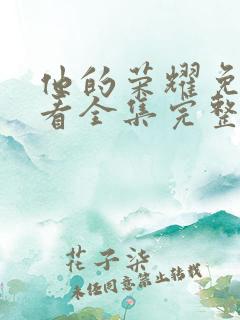 他的荣耀免
看全集完整
花子柒
未经同意禁止转载